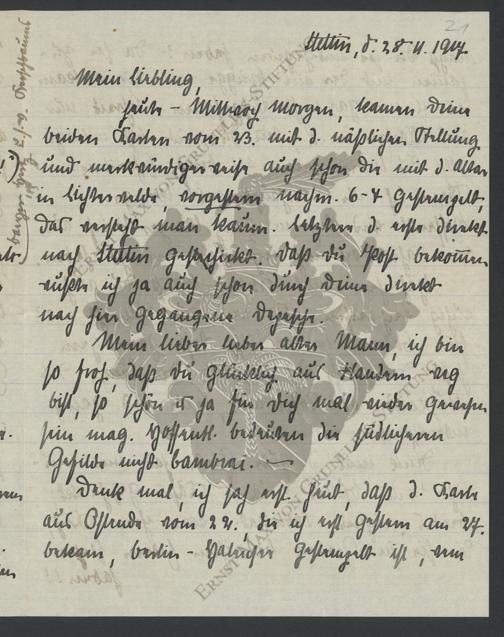 21
Stettin, d. 28. 11. 1917.
Mein Liebling,
heute - Mittwoch Morgen, kamen Deine
beiden Karten vom 23. mit d. näßlichen Stellung
und merkwürdigerweise auch schon die mit d. Altar
in Lichtervelde, vorgestern nachm. 6-7 gestempelt,
das versteht man kaum. Letztere d. erste direkt
nach Stettin geschickt. Daß Du Post bekommen
wußte ich ja auch schon durch Deine direkt
nach hier gegangene Depesche.
Mein lieber lieber alter Mann, ich bin
so froh, daß Du glücklich aus Flandern weg
bist, so schön es ja für Dich mal wieder gewesen
sein mag. Hoffentl. bedeuten die südlicheren
Gefilde nicht Cambrai.
Denk mal, ich sah erst heut, daß d. Karte
aus Ostende vom 22., die ich erst gestern am 27.
bekam, Berlin - gestempelt ist, vom
ERNST MAX VON GRUNELIUS-STIFTUNG